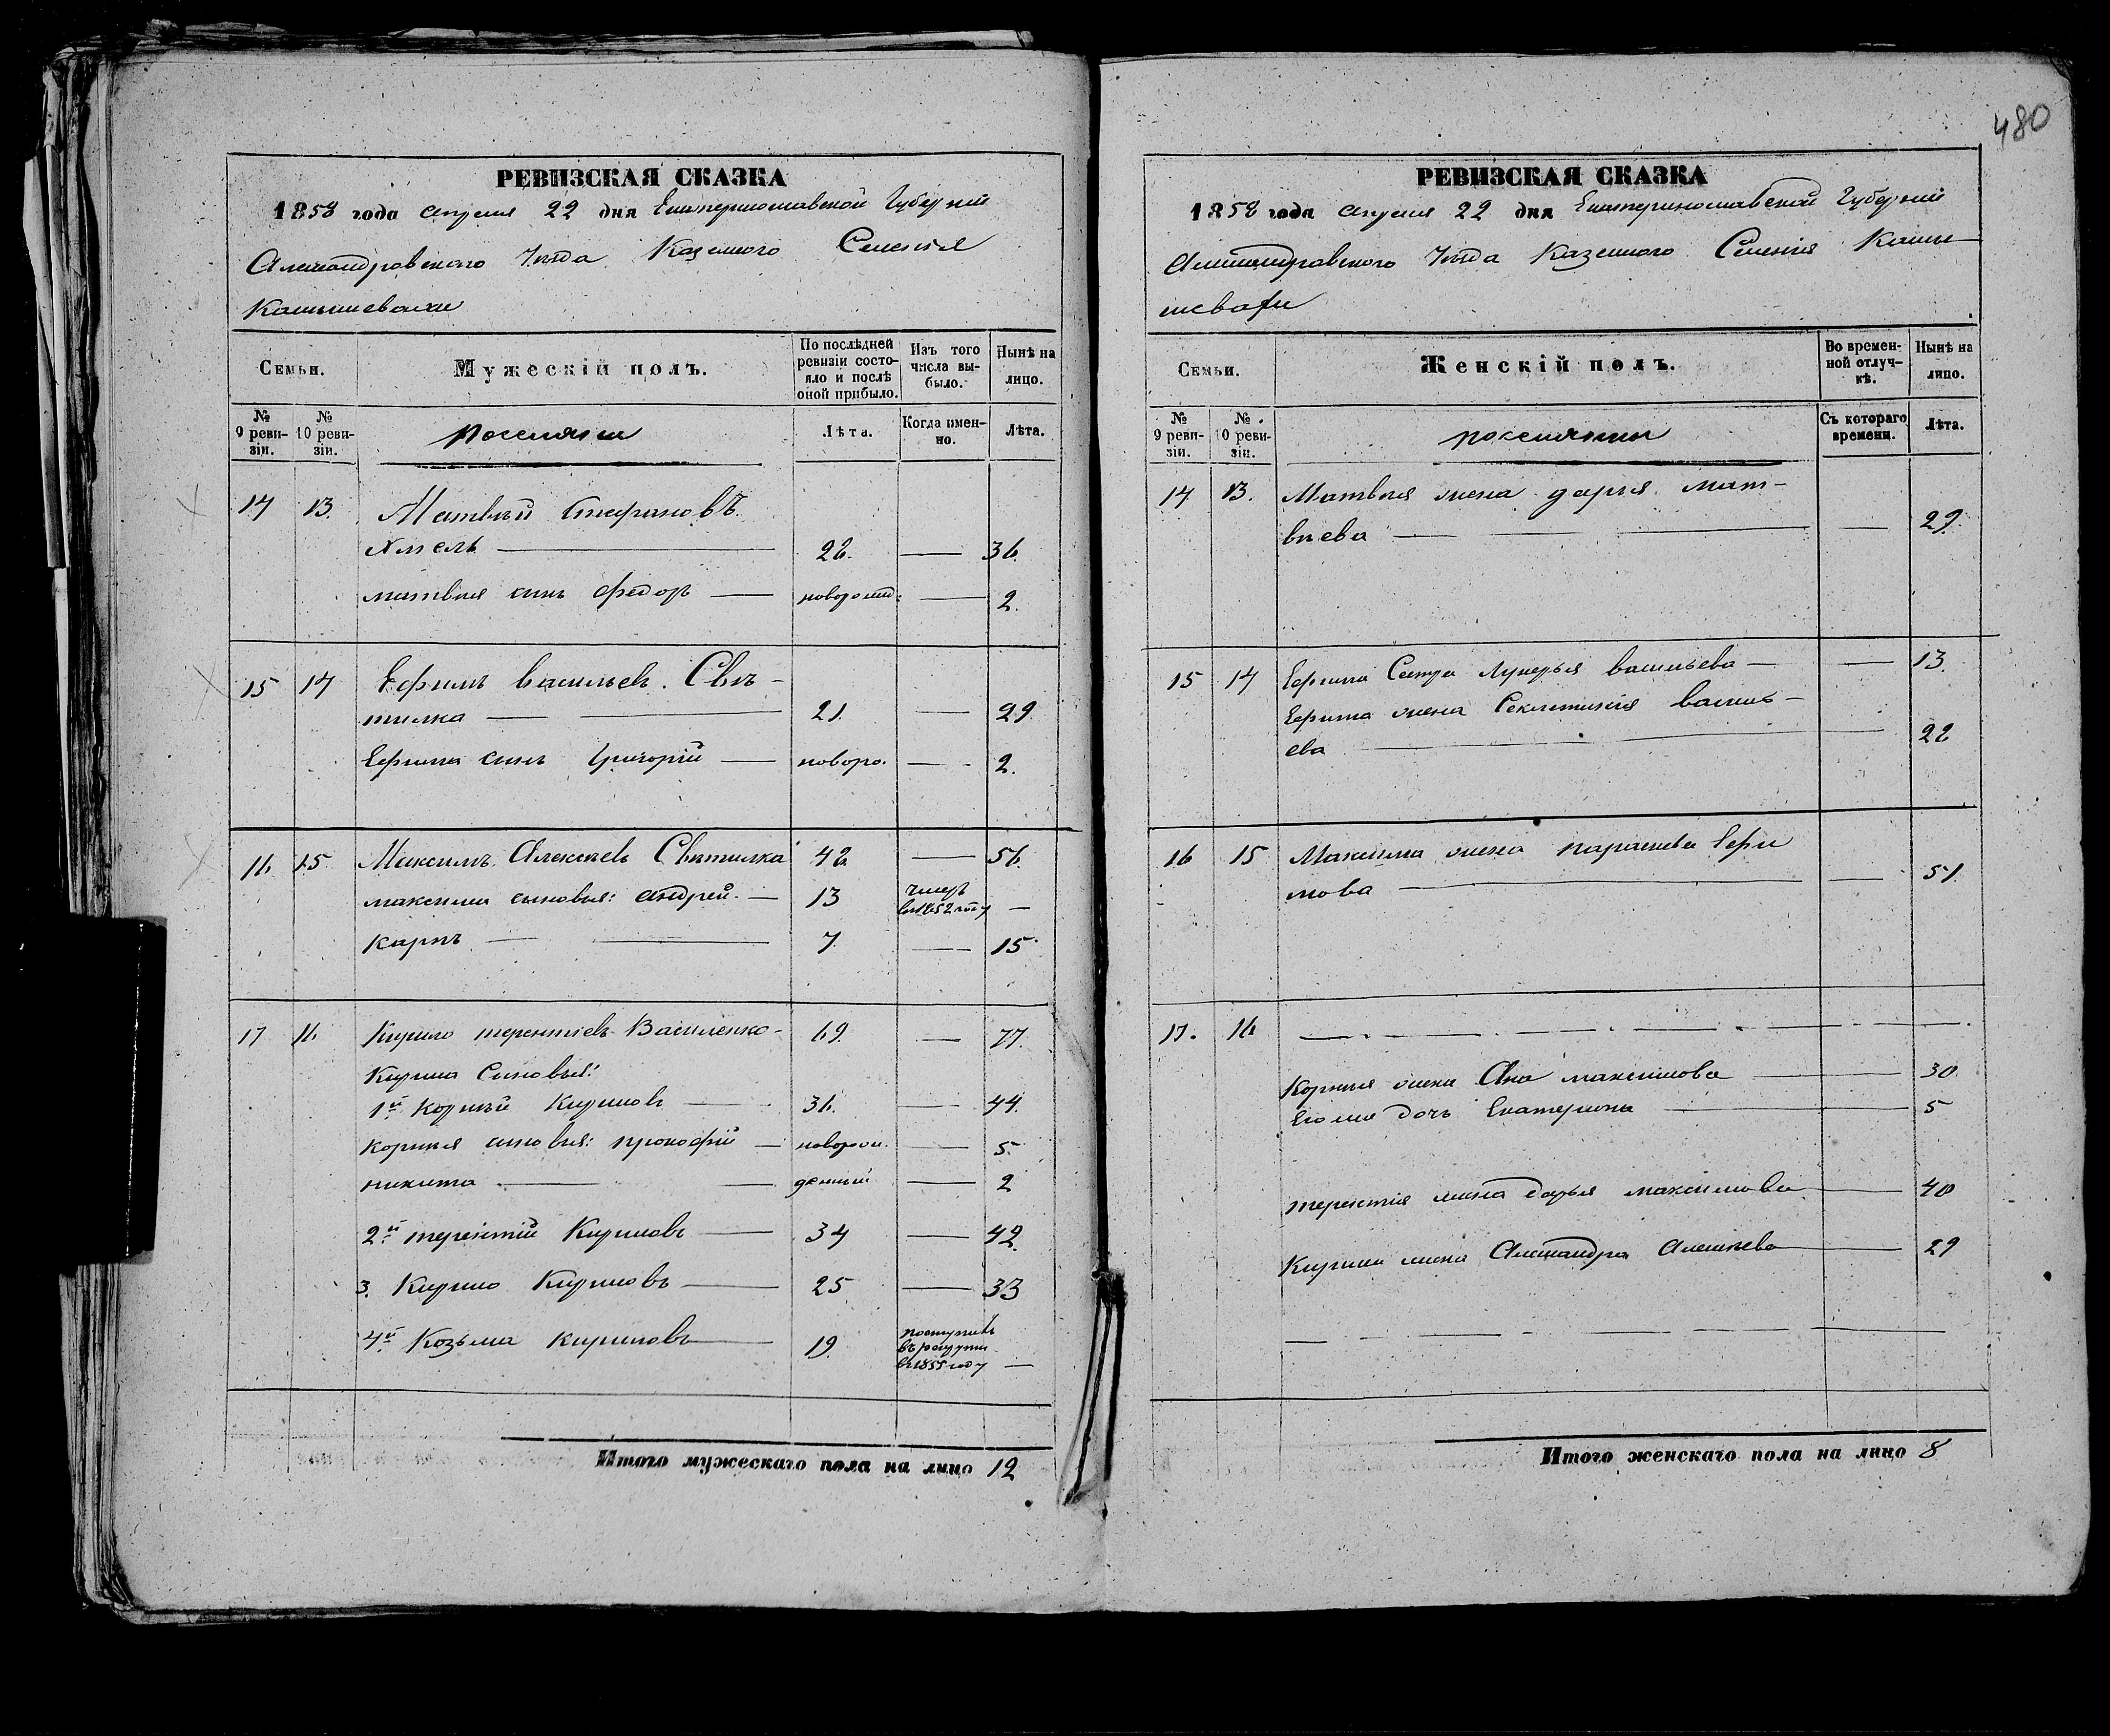 480
РЕВИЗСКАЯ СКАЗКА
1858 года Апреля 22 дня Екатеринославской Губерніи
Александровскаго Уѣзда Казенного Селенія
Камышевахи
Семьи.
Мужескій полъ.
По послѣдней ревизіи состояло и послѣ оной прибыло.
Изъ того числа выбыло.
Нынѣ на лицо.
№ 9 ревизіи.
№ 10 ревизіи.
поселяни
Лѣта.
Когда именно.
Лѣта.
14 13. Матвѣй Стефановъ
Хмель — 28. — 36.
матвѣя сынъ федоръ — новорожд: — 2.
15 14 Ефимъ Васильев. Свѣ-
тилка — 21. — 29
Ефима сынъ Григорій — новоро. — 2.
16 15 Максимъ Алексѣевъ Свѣтилка 48 — 56.
максима сыновья: андрей. — 13 умеръ въ 1852 году —
карпъ — 7. — 15
17 16. Кирило терентіевъ Василенко - 69. — 77.
Кирила Сыновья:
1й Корнѣй Кириловъ — 36. — 44.
корнѣя сыновья: прокофій — новорож. — 5.
никита — денныи — 2
2й терентій Кириловъ — 34 — 42.
3. Кирило Кириловъ — 25 — 33
4й Козьма кириловъ — 19. поступилъ въ рекруты въ 1855 году —
Итого мужескаго пола на лицо 12
РЕВИЗСКАЯ СКАЗКА
1858 года Апреля 22 дня Екатеринославской Губерніи
Александровского Уѣзда Казенного Селенія Камы-
шевахи
Семьи.
Женскій полъ.
Во временной отлучкѣ.
Нынѣ на лицо.
№ 9 ревизіи.
№ 10 ревизіи.
поселянки
Съ котораго времени.
Лѣта.
14 13. Матвѣя жена дарья мат-
вѣева — — 29.
15 14 Ефима Сестра Лукерья васильева — — 13.
Ефима жена Секлетинія василь-
ева — 22
16 15 Максима жена параскева Ефи
мова — — 51.
17. 16
Корнѣя жена Ана максимова — 30.
Его же дочь Екатерина — 5
терентія жена дарья максимова — 40
Кирила жена Александра Алексѣева — 29
Итого женскаго пола на лицо 8